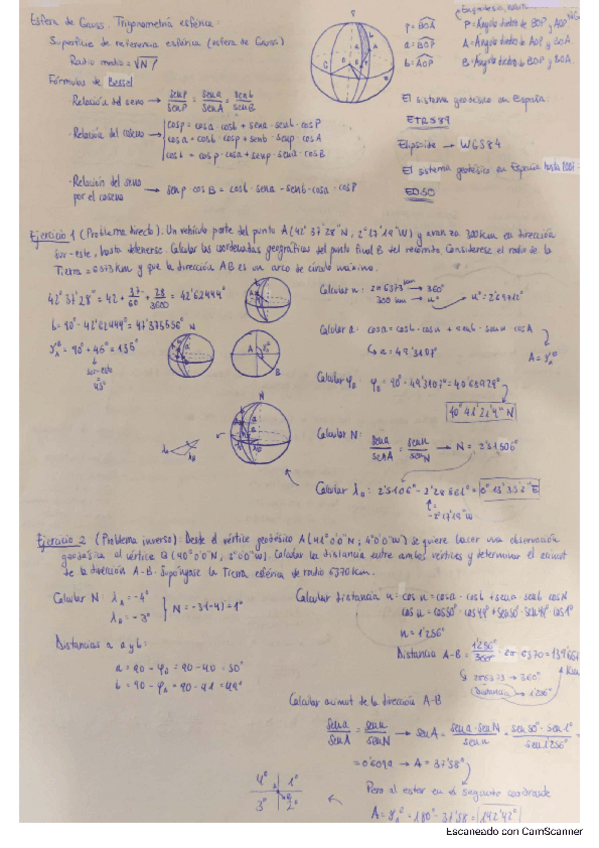 Esfera de Gauss. Trigonometría esférica:
Superficie de referencia esférica (esfera de Gauss)
Radio medio = √N ρ
Fórmulas de Bessel
Relación del seno → senp/senP = sena/senA = senb/senB
Relación del coseno → cosp = cosa · cosb + sena · senb · cosP
cosa = cosb · cosp + senb · senp · cosA
cosb = cosp · cosa + senp · sena · cosB
Relación del seno por el coseno → senp · cosB = cosb · sena - senb · cosa · cosP
p = BOA P = Ángulo diedro de BOP y AOP
a = BOP A = Ángulo diedro de AOP y BOA
b = AOP B = Ángulo diedro de BOP y BOA
El sistema geodésico en España:
ETRS89
Elipsoide → WGS84
El sistema geodésico en España hasta 2007
ED50
Ejercicio 1 (Problema directo). Un vehículo parte del punto A (42°37'28"N, 2°17'19"W) y avanza 300km en dirección
sur-este, hasta detenerse. Calcular las coordenadas geográficas del punto final B del recorrido. Considerese el radio de la
Tierra = 6373 km y que la dirección AB es un arco de círculo máximo.
42°37'28" = 42 + 37/60 + 28/3600 = 42'62444°
b = 90° - 42'62444° = 47'375556°
= 90° + 45° = 135°
sur-este
45°
Calcular n: 2π6373 km → 360°
300 km → n° n° = 2'69712°
Calcular a: cosa = cosb · cosn + senb · senn cosA
a = 49'3107°
Calcular φB: φB = 90° - 49'3107° = 40'6892°
40°41'21'4" N
Calcular N: sena/senA = senn/senN → N = 2'51506°
Calcular λB: 2'5106° - 2'28861° = 0°13'35'2" E
-2°17'19"W
Ejercicio 2 (Problema inverso). Desde el vértice geodésico A (41°0'0"N; 4°0'0"W) se quiere hacer una observación
geodésica al vértice B (40°0'0"N, 3°0'0"W). Calcular la distancia entre ambos vértices y determinar el acimut
de la dirección A-B. Supóngase la Tierra esférica de radio 6370km.
Calcular N: λA = -4°
λB = -3°
N = -3-(-4) = 1°
Distancias a a y b:
a = 90 - φB = 90 - 40 = 50°
b = 90 - φA = 90 - 41 = 49°
Calcular distancia n: cos n = cosa · cosb + sena · senb cosN
cos n = cos50° · cos49° + sen50° · sen49° cos1°
n = 1'256°
Distancia A-B = 1'256°/360° · 2π 6370 =
2π6373 → 360°
Distancia → 1'256
Km
Calcular acimut de la dirección A-B
sena/senA = senn/senN → senA = sena · senN/senn = sen50° · sen1°/sen1'256°
→ A = 37'58°
4° 1°
3° 2°
Pero al estar en el segundo cuadrante
A = = 180° - 37'58 = 142'42°
Escaneado con CamScanner